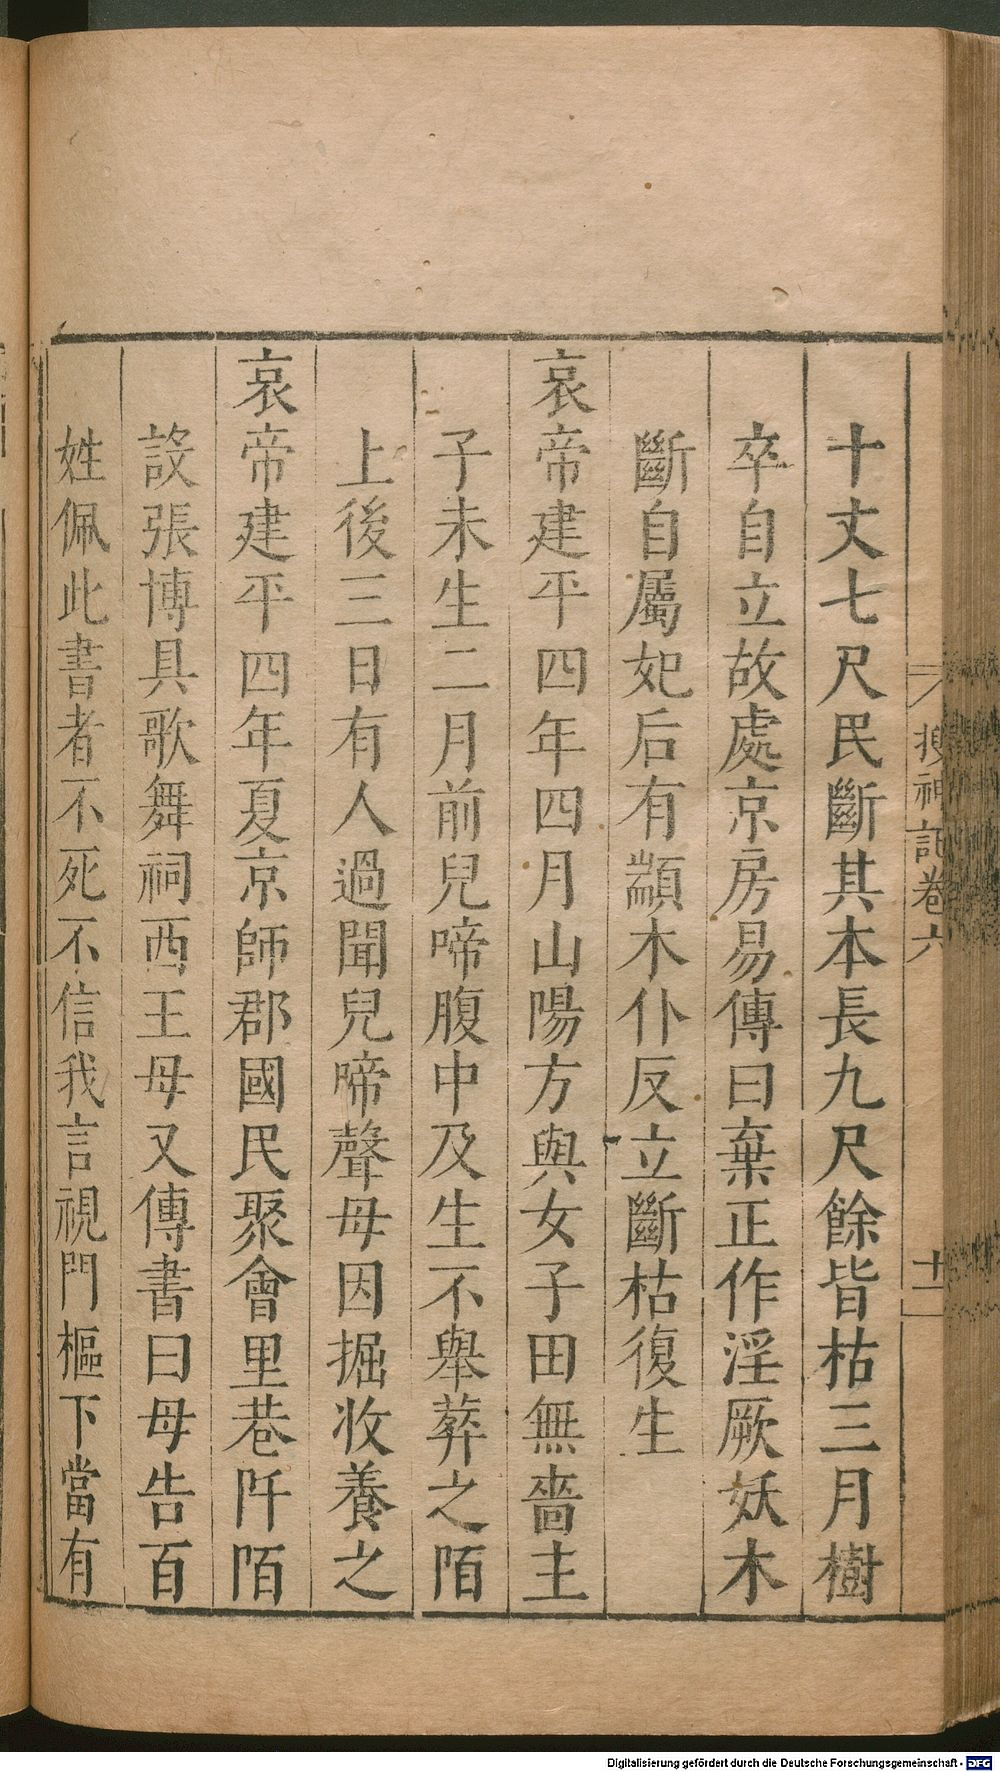 搜神記卷六
十二
十丈七尺民斷其本長九尺餘皆枯三月樹
卒自立故處京房易傳曰棄正作淫厥妖木
斷自屬妃后有顓木仆反立斷枯復生
哀帝建平四年四月山陽方與女子田無嗇主
子未生二月前兒啼腹中及生不舉葬之陌
上後三日有人過聞兒啼聲母因掘收養之
哀帝建平四年夏京師郡國民聚會里巷阡陌
設張博具歌舞祠西王母又傳書曰母告百
姓佩此書者不死不信我言視門樞下當有
Digitalisierung gefördert durch die Deutsche Forschungsgemeinschaft - DFG